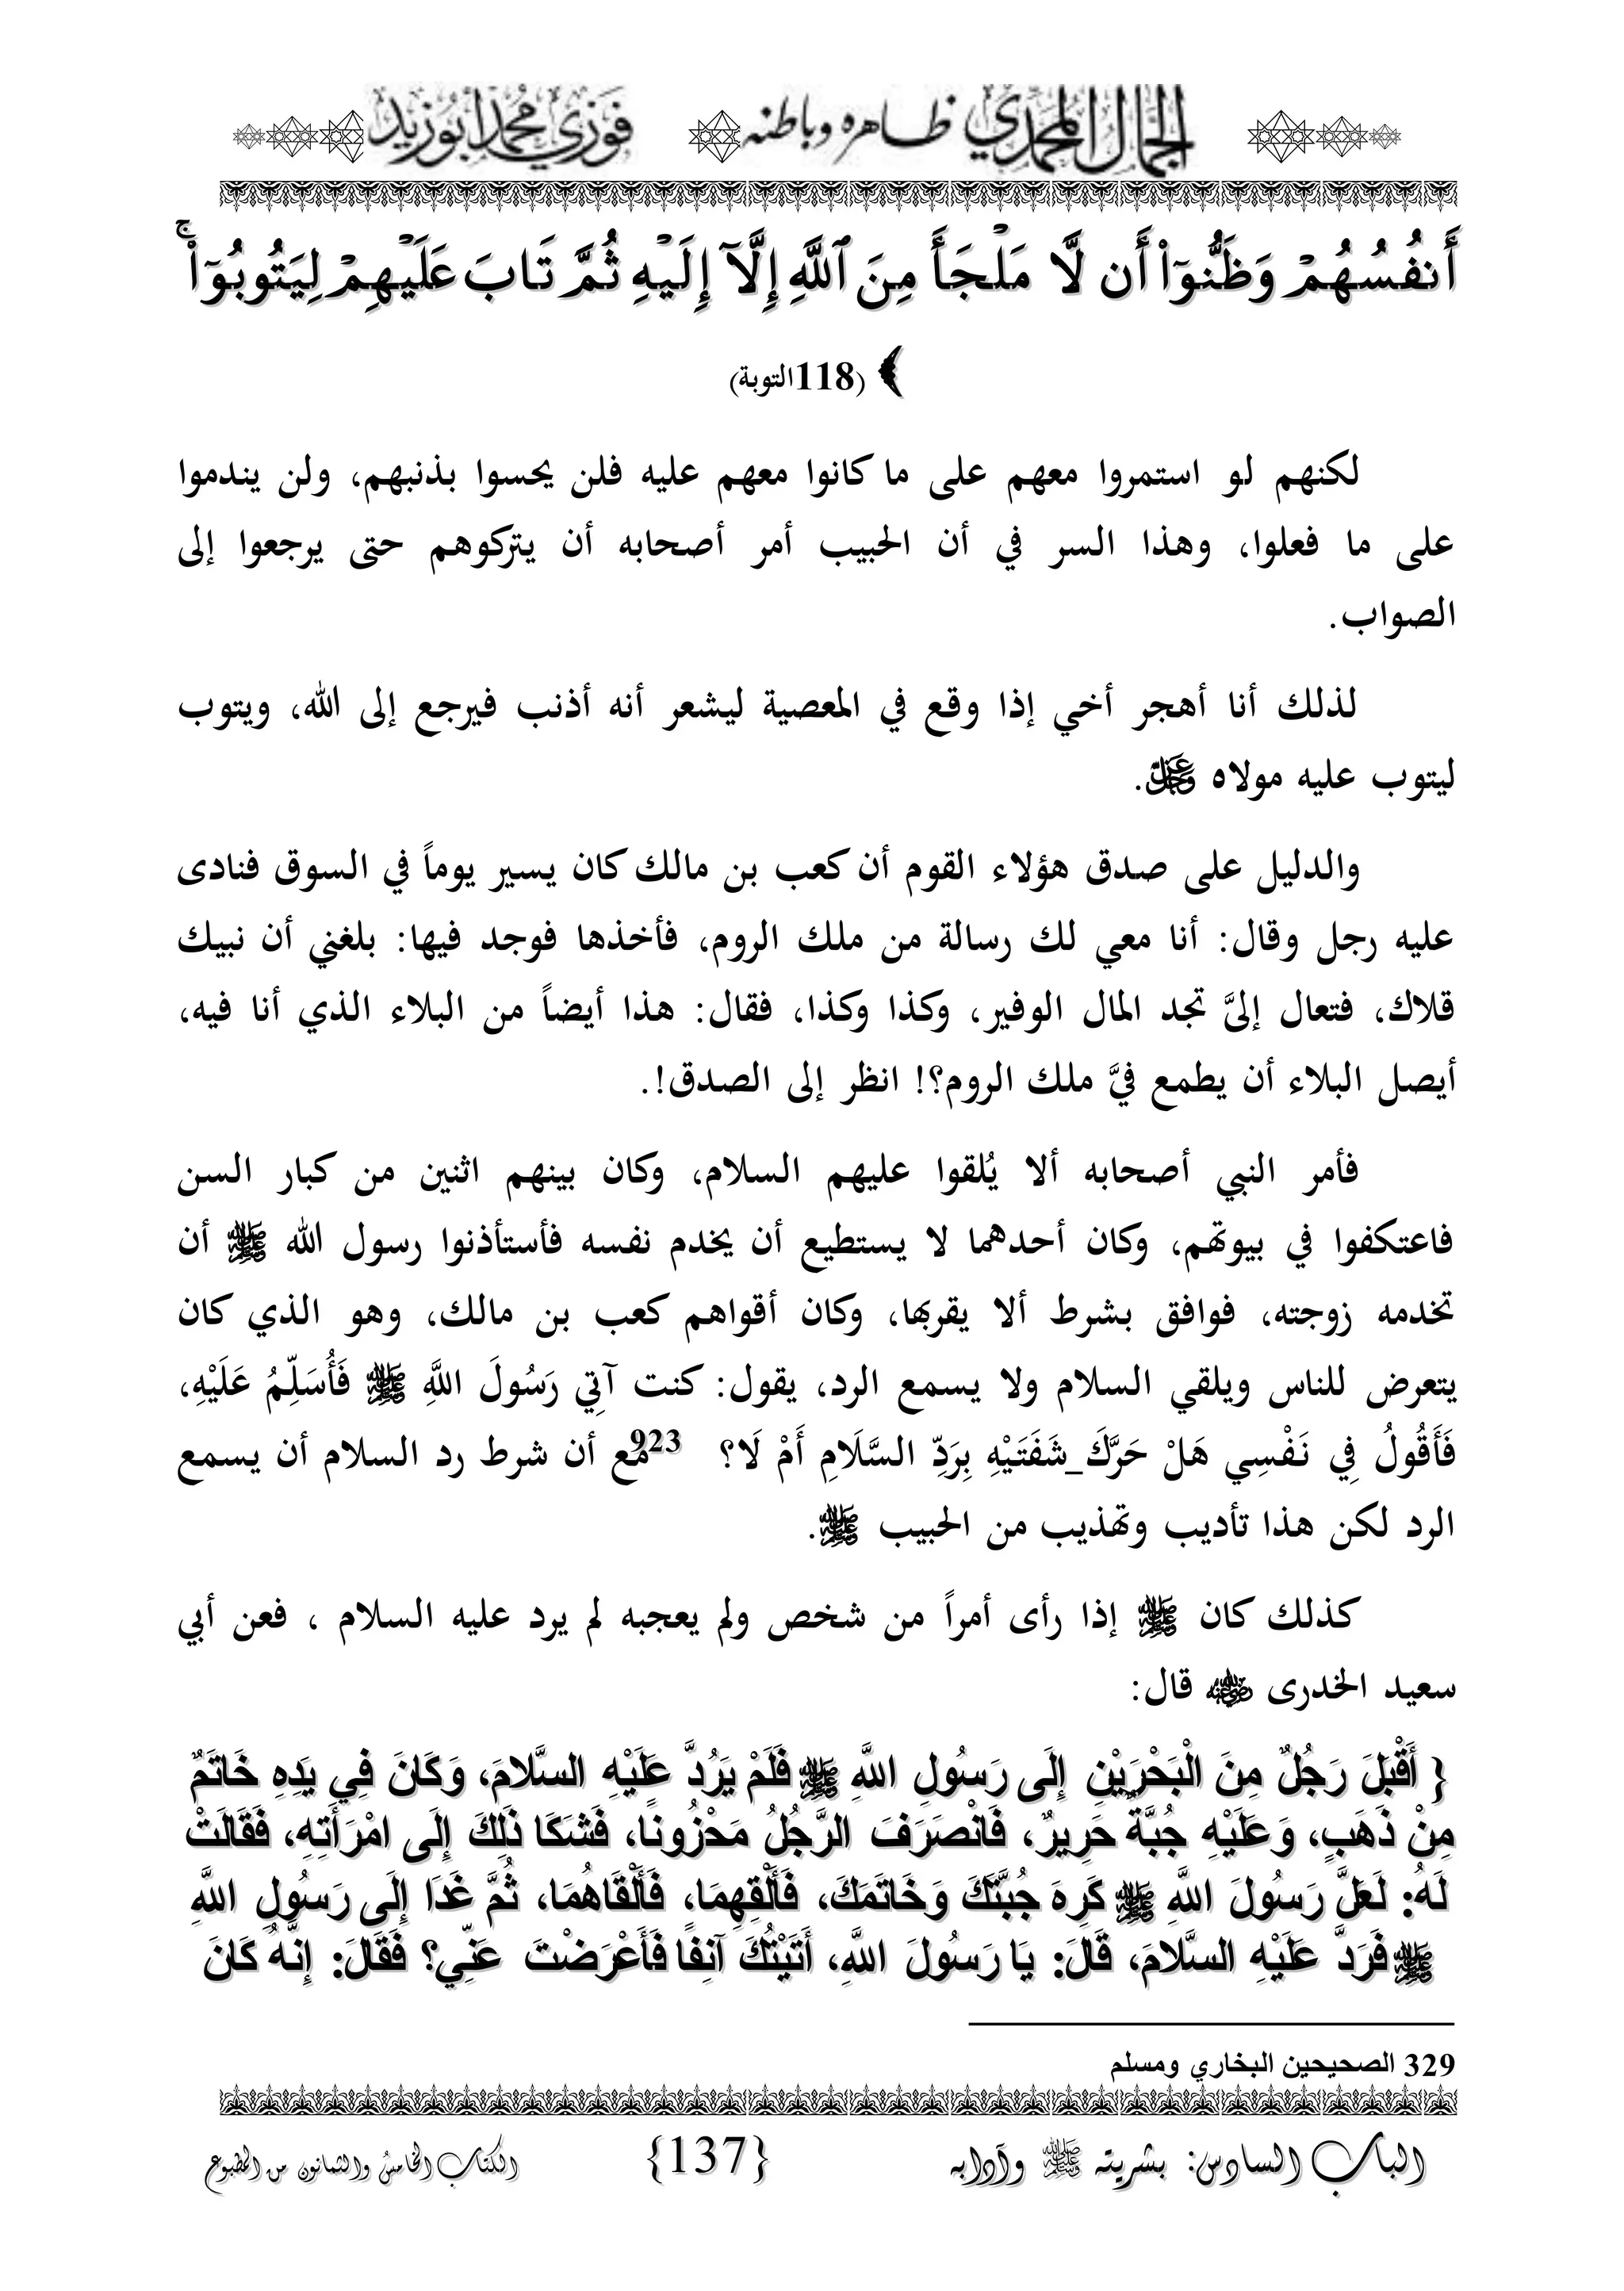 الجمال المحمدي ظاهره وباطنه فوزي محمد أبوزيد
أَنفُسُهُمۡ وَظَنُّوٓاْ أَن لَّا مَلۡجَأَ مِنَ ٱللَّهِ إِلَّآ إِلَيۡهِ ثُمَّ تَابَ عَلَيۡهِمۡ لِيَتُوبُوٓاْۚ
﴾ (118التوبة)
لكنهم لو استمروا معهم على ما كانوا معهم عليه فلن يحسوا بذنبهم، ولن يندموا
على ما فعلوا، وهذا السر في أن الحبيب أمر أصحابه أن يتركوهم حتى يرجعوا إلى
الصواب.
لذلك أنا أهجر أخي إذا وقع في المعصية ليشعر أنه أذنب فيرجع إلى الله، ويتوب
ليتوب عليه مولاه عَزَّ وَجَلَّ.
والدليل على صدق هؤلاء القوم أن كعب بن مالك كان يسير يوماً في السوق فنادى
عليه رجل وقال: أنا معي لك رسالة من ملك الروم، فأخذها فوجد فيها: بلغني أن نبيك
قلاك، فتعال إلىَّ تجد المال الوفير، وكذا وكذا، فقال: هذا أيضاً من البلاء الذي أنا فيه،
أيصل البلاء أن يطمع فيَّ ملك الروم؟! انظر إلى الصدق!.
فأمر النبي أصحابه ألا يُلقوا عليهم السلام، وكان بينهم اثنين من كبار السن
فاعتكفوا في بيوتهم، وكان أحدهما لا يستطيع أن يخدم نفسه فأستأذنوا رسول الله ﷺ أن
تخدمه زوجته، فوافق بشرط ألا يقربها، وكان أقواهم كعب بن مالك، وهو الذي كان
يتعرض للناس ويلقي السلام ولا يسمع الرد، يقول: كنت آتِي رَسُولَ اللَّهِ ﷺ فَأُسَلِّمُ عَلَيْهِ،
فَأَقُولُ فِي نَفْسِي هَلْ حَرَّكَ_شَفَتَيْهِ بِرَدِّ السَّلَامِ أَمْ لَا؟ 923مع أن شرط رد السلام أن يسمع
الرد لكن هذا تأديب وتهذيب من الحبيب ﷺ.
كذلك كان ﷺ إذا رأى أمراً من شخص ولم يعجبه لم يرد عليه السلام ، فعن أبي
سعيد الخدرى رضي الله عنه قال:
{ أَقْبَلَ رَجُلٌ مِنَ الْبَحْرَيْنِ إِلَى رَسُولِ اللَّهِ ﷺ فَلَمْ يَرُدَّ عَلَيْهِ السَّلامَ، وَكَانَ فِي يَدِهِ خَاتَمٌ
مِنْ ذَهَبٍ، وَعَلَيْهِ جُبَّةُ حَرِيرٌ، فَانْصَرَفَ الرَّجُلُ مَحْزُونًا، فَشَكَا ذَلِكَ إِلَى امْرَأَتِهِ، فَقَالَتْ
لَهُ: لَعَلَّ رَسُولَ اللَّهِ ﷺ كَرِهَ جُبَّتَكَ وَخَاتَمَكَ، فَأَلْقِهِمَا، فَأَلْقَاهُمَا، ثُمَّ غَدَا إِلَى رَسُولِ اللَّهِ
ﷺ فَرَدَّ عَلَيْهِ السَّلَامَ، قَالَ: يَا رَسُولَ اللَّهِ، أَتَيْتُكَ آنِفًا فَأَعْرَضْتَ عَنِّي؟ فَقَالَ: إِنَّهُ كَانَ
329 الصحيحين البخاري ومسلم
الباب السادس: بشريته ﷺ وآدابه {137} الكتاب الخامس والثمانون من المطبوع